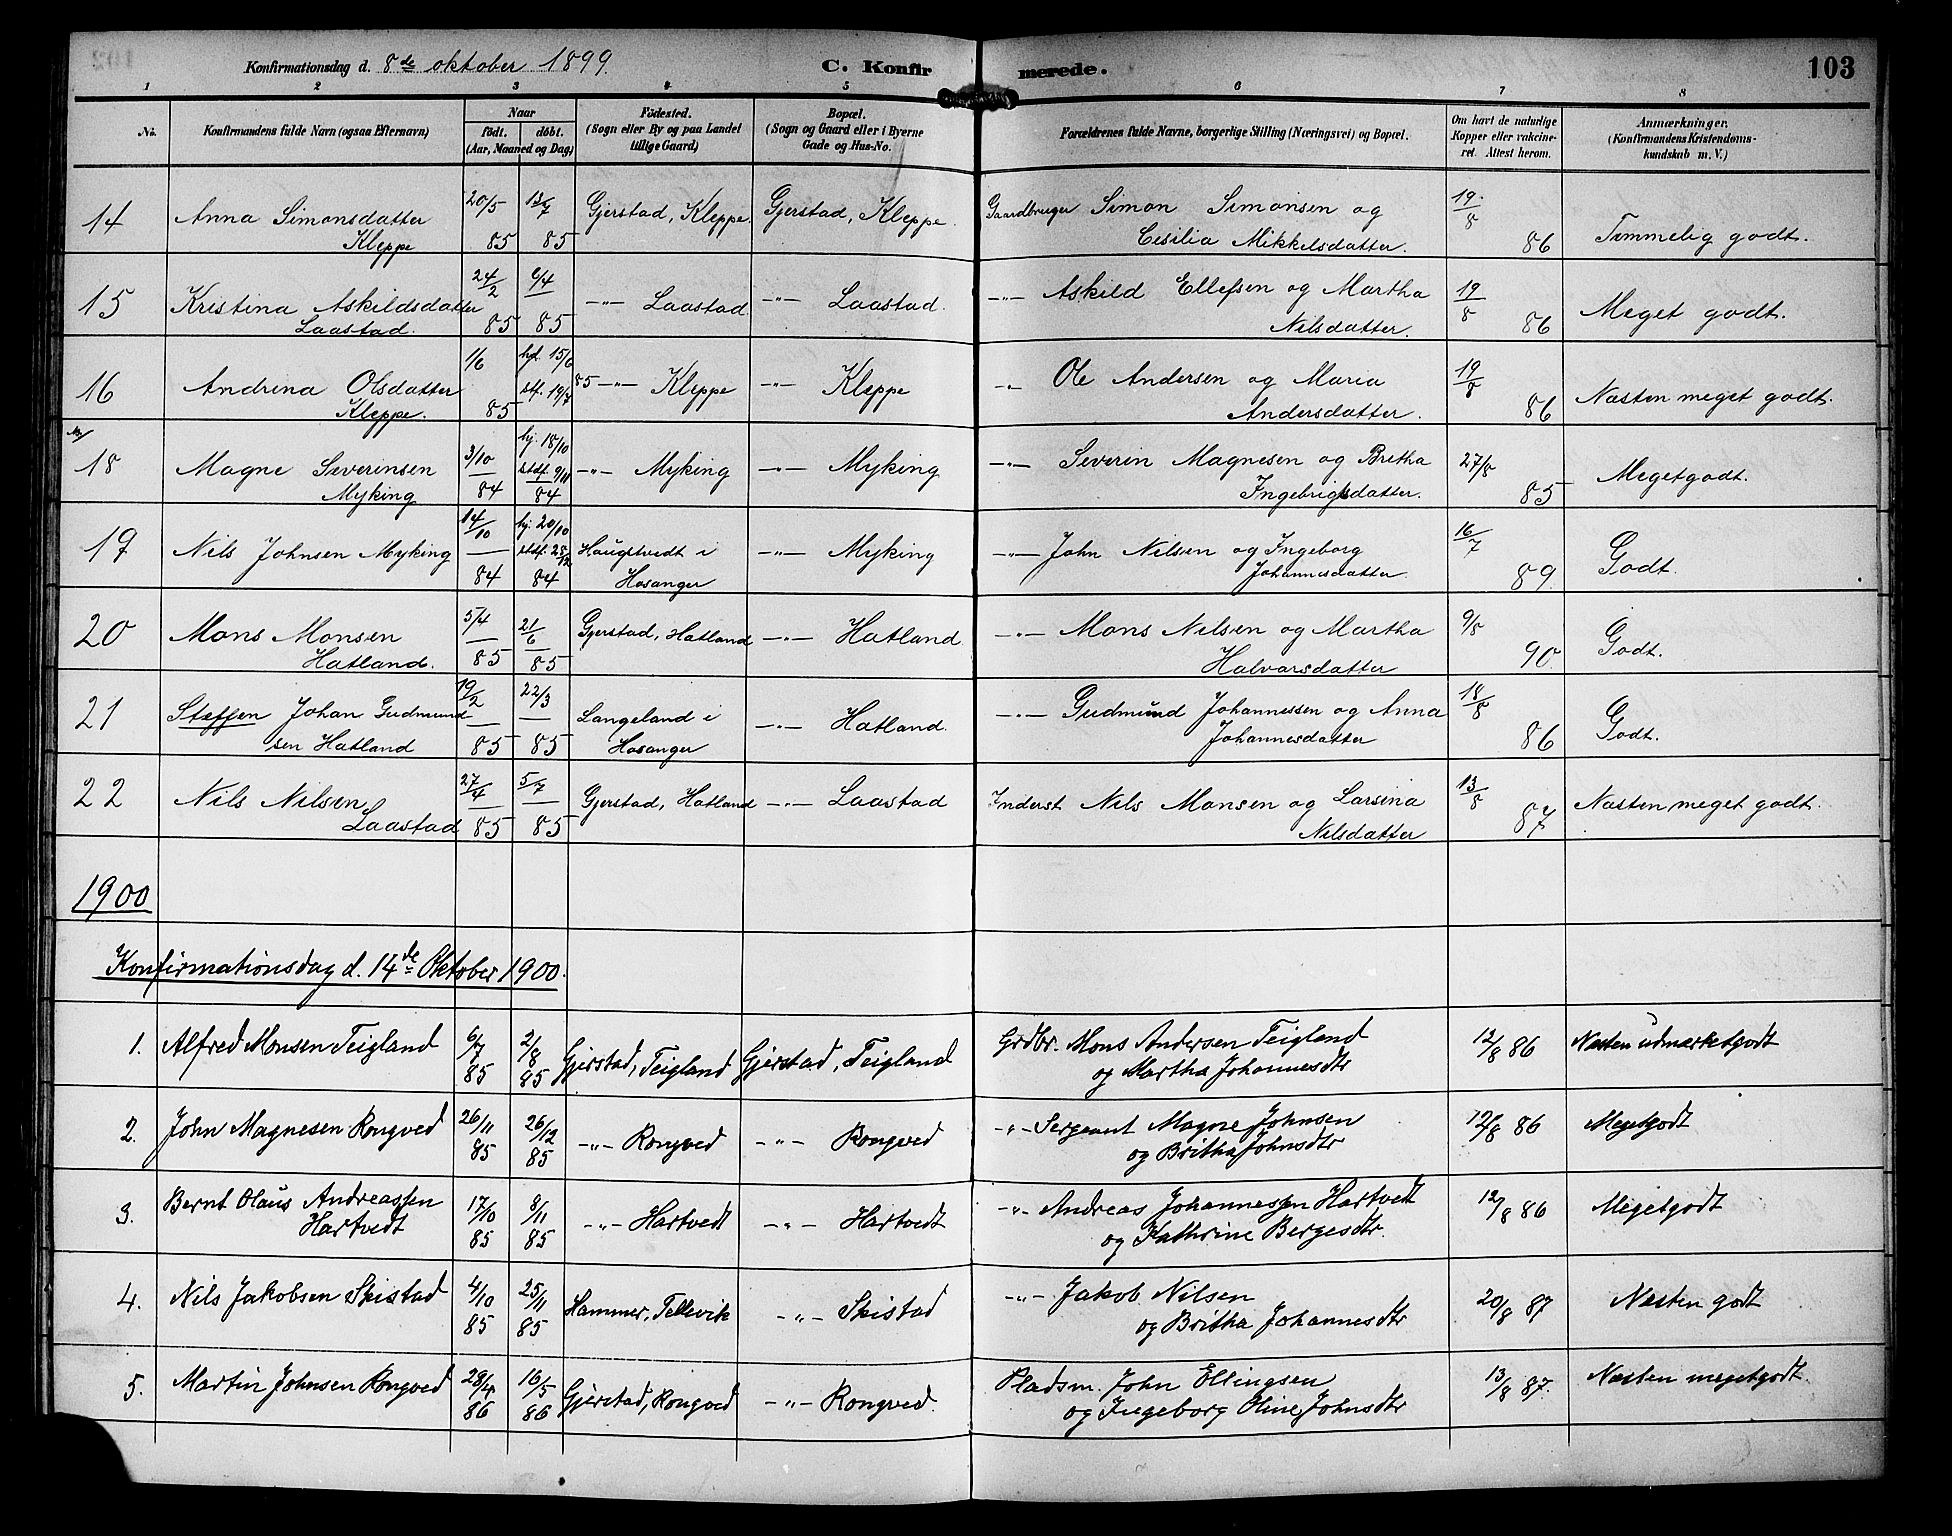 Konfirmationsdag d. 8de oktober 1899. C. Konfirmerede. 103
1 2 3 4 5 6 7 8
No. Konfirmandens fulde Navn (ogsaa Efternavn) Naar født. døbt. (Aar, Maaned og Dag) Fødested. (Sogn eller By og paa Landet tillige Gaard) Bopæl. (Sogn og Gaard eller i Byerne Gade og Hus-No. Forældrenes fulde Navne, borgerlige Stilling (Næringsvei) og Bopæl. Om havt de naturlige Kopper eller vakcineret. Attest herom. Anmærkninger. (Konfirmandens Kristendomskundskab m. V.)
14 Anna Simonsdatter 20/5 12/7 Gjerstad, Kleppe. Gjerstad, Kleppe. Gaardbruger Simon Simonsen og 19/8
Kleppe 85 85 Cesilia Mikkelsdatter. 86 Temmelig godt.
15 Kristina Askildsdatter 24/2 6/4 -"- Laastad -"- Laastad. -"- Askild Ellefsen og Martha 19/8
Laastad. 85 85 Nilsdatter. 86 Meget godt.
16 Andrina Olsdatter 1/6 hd. 15/6 stf. 19/7 85 -"- Kleppe -"- Kleppe -"- Ole Andersen og Maria 19/8
Kleppe. 85 Andersdatter. 86 Næsten meget godt.
18 Magne Severinsen 3/10 hj. 18/10 stdf. 9/11 -"- Myking -"- Myking -"- Severin Magnesen og Bretha 27/8
Myking 84 84 Ingebrigtsdatter. 85 Megetgodt.
19 Nils Johnsen Myking 14/10 hj. 20/10 stdf. 28/12 Haugstvedt i -"- Myking -"- John Nilsen og Ingeborg 16/7
84 84 Hosanger Johannesdatter. 89. Godt.
20 Mons Monsen 5/4 21/6 Gjerstad, Hatland -"- Hatland -"- Mons Nilsen og Martha 9/8
Hatland. 85 85 Halvarsdatter 90. Godt.
21 Steffen Johan Gudmund 19/2 22/3 Langeland i -"- Hatland. -"- Gudmund Johannessen og Anna 18/8
sen Hatland 85 85 Hosanger Johannesdatter 86 Godt.
22 Nils Nilsen 27/4 5/7 Gjerstad, Hatland -"- Laastad Inderst Nils Monsen og Larsina 13/8
Laastad 85 85 Nilsdatter 87 Næsten meget godt.
1900
Konfirmationsdag d. 14de Oktober 1900.
1. Alfred Monsen Teigland 6/7 85 2/8 85 Gjerstad, Teigland Gjerstad, Teigland Grdbr. Mons Andersen Teigland 12/8 86 Næsten udmærketgodt
og Martha Johannesdtr
2. John Magnesen Rongved 26/11 85 26/12 85 -"- Rongved -"- Rongved -"- Sergeant Magne Johnsen 12/8 86 Megetgodt
og Britha Johnsdtr
3. Bernt Olaus Andreassen 17/10 85 8/11 85 -"- Hartvedt -"- Hartvedt -"- Andreas Johannessen Hartvedt 12/8 86 Megetgodt
Hartvedt og Kathrine Bergesdtr.
4. Nils Jakobsen Skistad 4/10 85 25/11 85 Hammer, Tellevik -"- Skistad -"- Jakob Nilsen 20/8 87 Næsten godt
og Britha Johannesdtr
5. Martin Johnsen Rongved 28/4 86 16/5 86 Gjerstad, Rongved -"- Rongved. Pladsm. John Ellingsen 13/8 87. Næsten megetgodt.
og Ingeborg Oline Johnsdtr